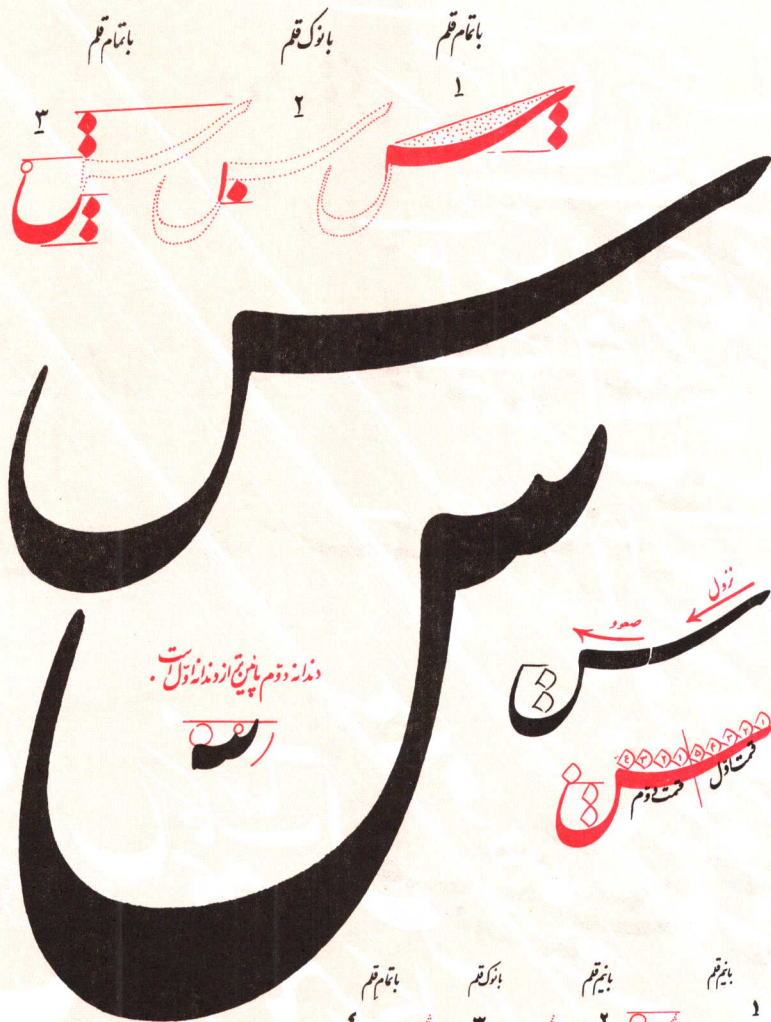 با تمام قلم
با نوک قلم
با تمام قلم
۱
۲
۳
س
س
نزول
صعود
س
دندانه دوّم پائین تر از دندانه اوّل است .
س
۱ ۲ ۳ ۴ ۵ ۱ ۲ ۳ ۴
قسمت اوّل
قسمت دوّم
با نیم قلم
با نیم قلم
با نوک قلم
با تمام قلم
۱
۲
۳
۴